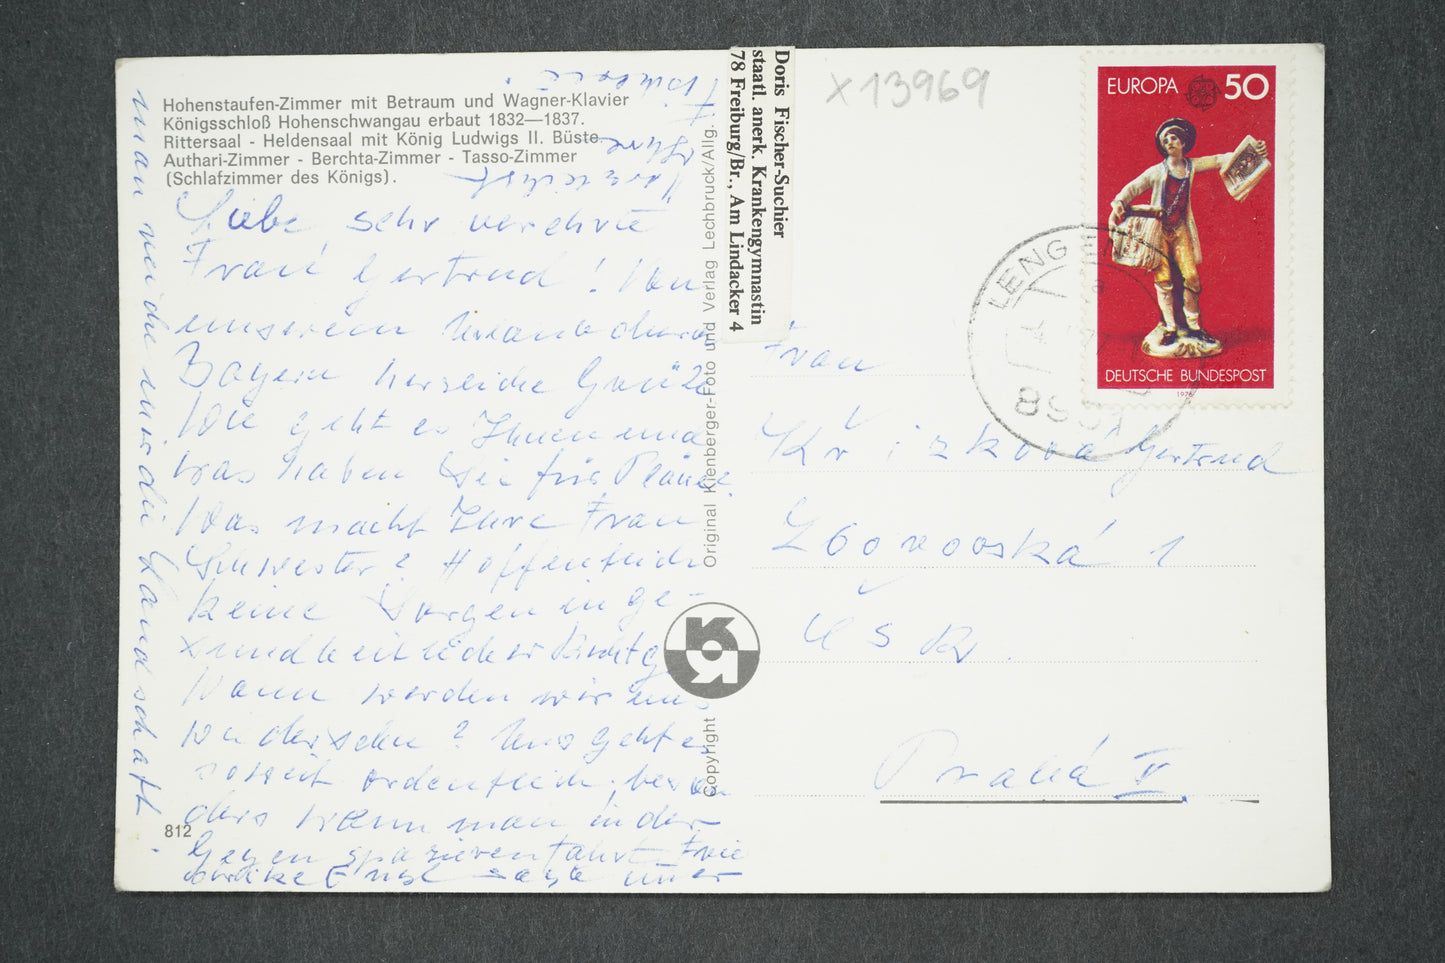 Hohenstaufen-Zimmer mit Betraum und Wagner-Klavier
Königsschloß Hohenschwangau erbaut 1832—1837.
Rittersaal - Heldensaal mit König Ludwigs II. Büste
Authari-Zimmer - Berchta-Zimmer - Tasso-Zimmer
(Schlafzimmer des Königs).
Liebe, sehr verehrte
Frau Gertrud! Von
unserem Urlaub durch
Bayern herzliche Grüße
Wie geht es Ihnen und
was haben Sie für Pläne?
Was macht Ihre Frau
Schwester? Hoffentlich
keine Sorgen in ge-
sundheitlicher
Wann werden wir uns
wiedersehen? Uns geht es
soweit ordentlich, beson
ders wenn man in der
Gegen spazierenfährt
812
man
Landschaft.
Ihre
Original Kienberger-Foto und Verlag Lechbruck/Allg.
Copyright
Doris Fischer-Suchier
staatl. anerk. Krankengymnastin
78 Freiburg/Br., Am Lindacker 4
X13969
EUROPA 50
DEUTSCHE BUNDESPOST
1976
LENG
Frau
Křižková Gertrud
Zborovská 1
ČSR.
Praha V.